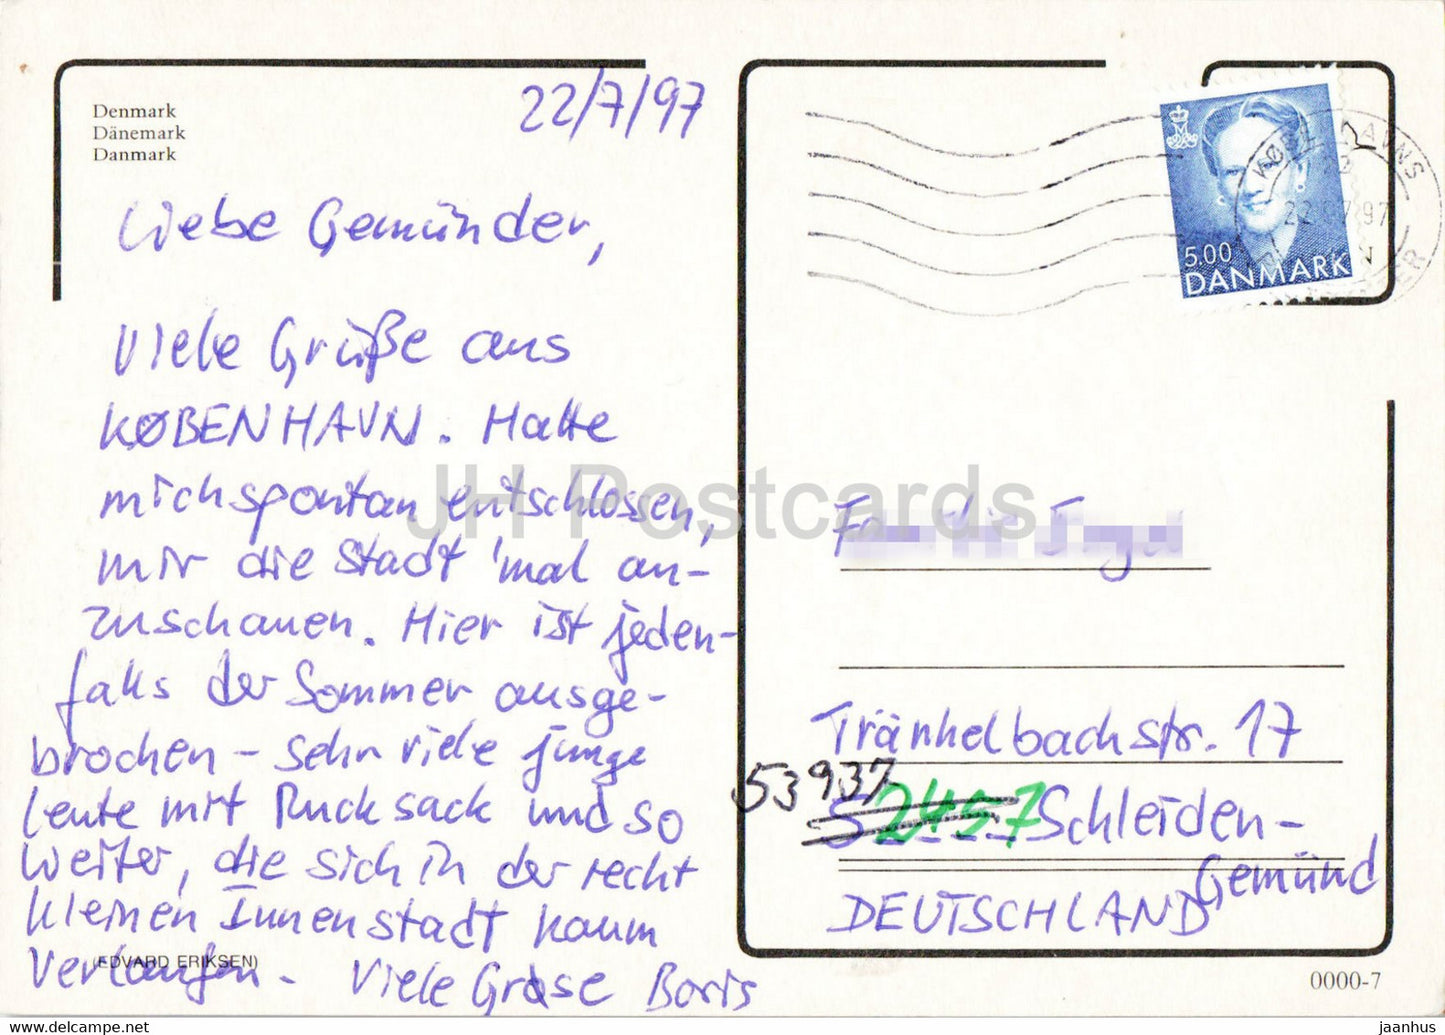 Denmark
Dänemark
Danmark
22/7/97
Liebe Gemünder,
Viele Grüße aus
KØBENHAVN. Hatte
mich spontan entschlossen,
mir die Stadt 'mal an-
zuschauen. Hier ist jeden-
falls der Sommer ausge-
brochen - sehr viele junge
Leute mit Rucksack und so
weiter, die sich in der recht
kleinen Innenstadt kaum
verlaufen. Viele Grüsse Boris
(EDVARD ERIKSEN)
5.00
DANMARK
KØBENHAVNS
22.07.97
JH Postcards
Familie
Tränkelbachstr. 17
53937
Schleiden-
Gemünd
DEUTSCHLAND
0000-7
www.delcampe.net
jaanhus